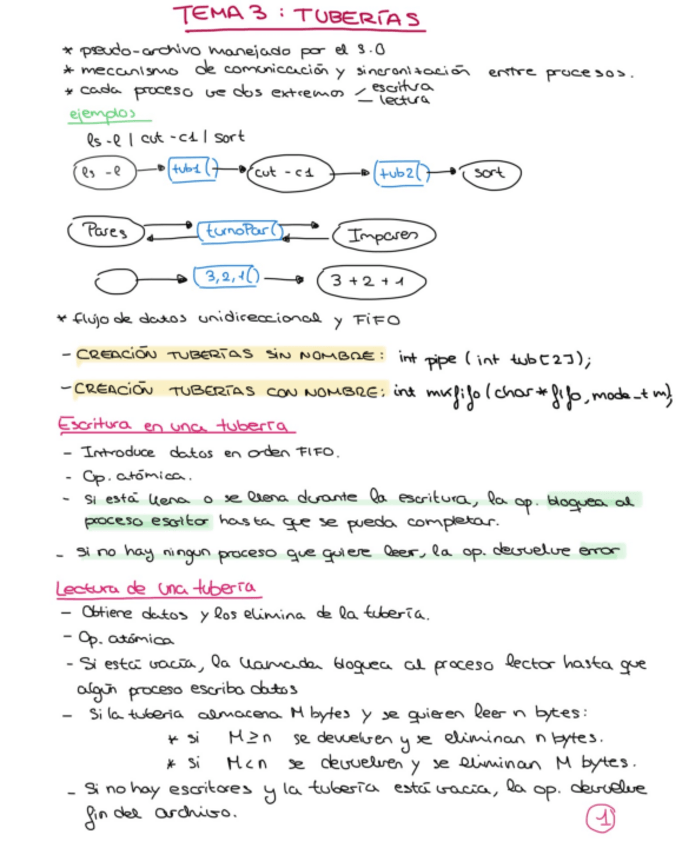 TEMA 3 : TUBERÍAS
* pseudo-archivo manejado por el S.O
* mecanismo de comunicación y sincronización entre procesos.
* cada proceso ve dos extremos
escritura
lectura
ejemplos
ls -l | cut -c1 | sort
ls -l
tub1()
cut -c1
tub2()
sort
Pares
turnoPar()
Impares
3,2,1()
3 + 2 + 1
* flujo de datos unidireccional y FiFO
- CREACIÓN TUBERÍAS SIN NOMBRE: int pipe (int tub[2]);
- CREACIÓN TUBERÍAS CON NOMBRE: int mkfifo (char * fifo, mode_t m);
Escritura en una tubería
- Introduce datos en orden FIFO.
- Op. atómica.
- Si está llena o se llena durante la escritura, la op. bloquea al
proceso escritor hasta que se pueda completar.
- si no hay ningun proceso que quiere leer, la op. devuelve error
Lectura de una tubería
- Obtiene datos y los elimina de la tubería.
- Op. atómica
- Si está vacía, la llamada bloquea al proceso lector hasta que
algún proceso escriba datos
- Si la tubería almacena M bytes y se quieren leer n bytes:
* si M ≥ n se devuelven y se eliminan n bytes.
* si M < n se devuelven y se eliminan M bytes.
- Si no hay escritores y la tubería está vacía, la op. devuelve
fin del archivo.
1